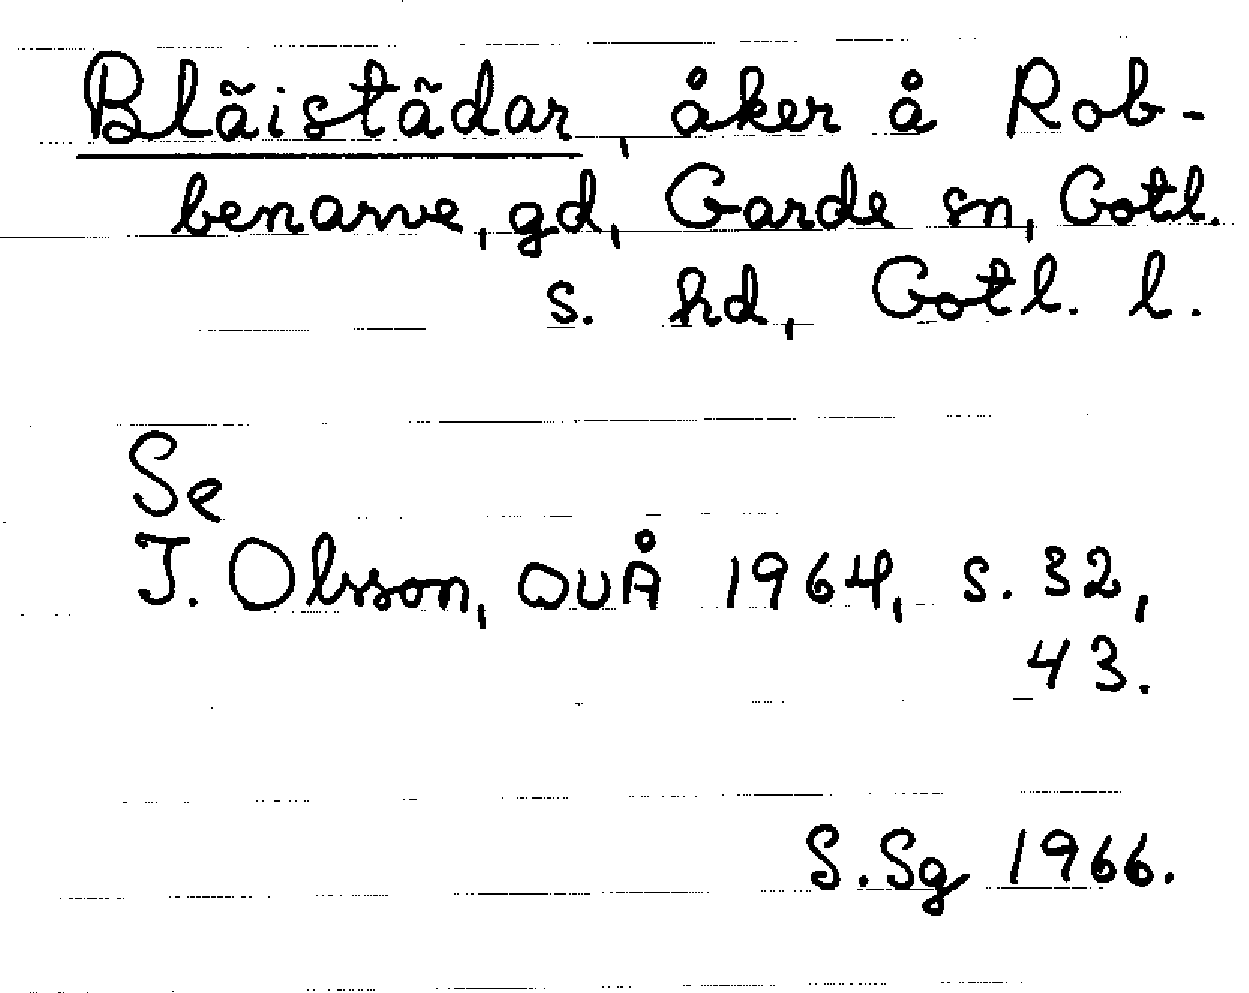 Blãistãdar, åker å Rob-
benarve, gd, Garde sn, Gotl.
s. hd, Gotl. l.
Se
I. Olsson, OUÅ 1964, s. 32,
43.
S. Sg 1966.